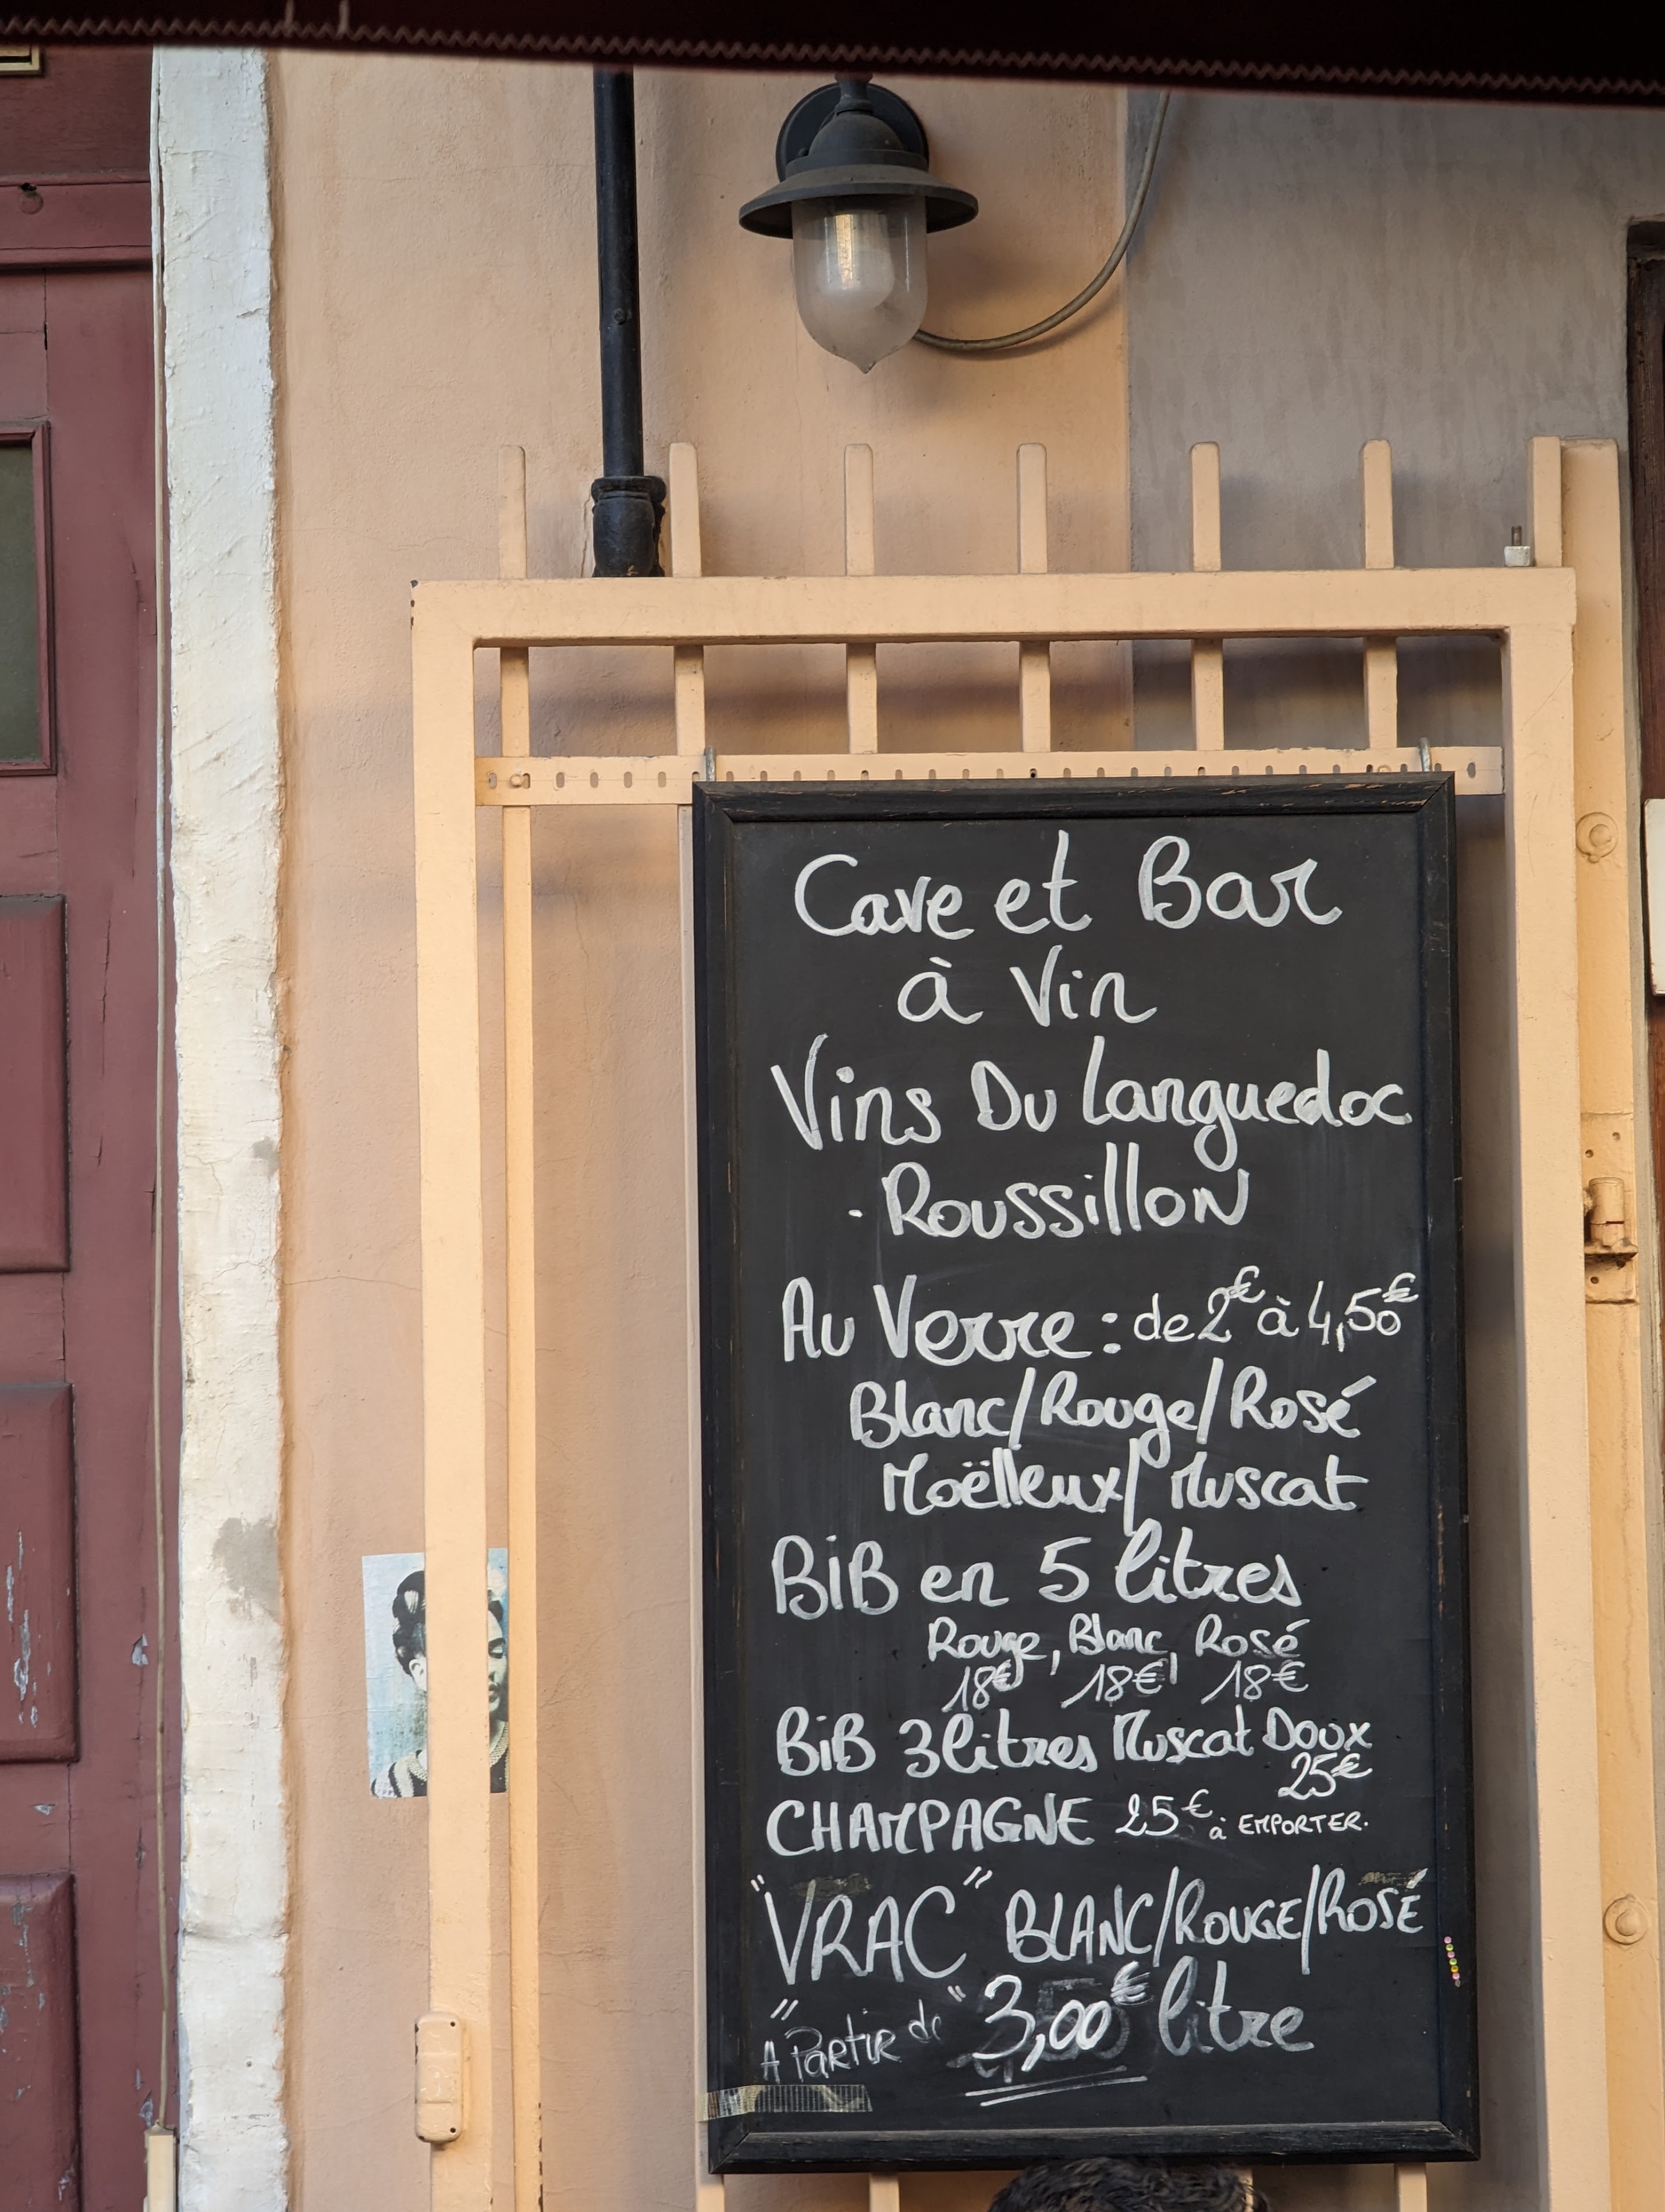 Cave et Bar
à Vin
Vins Du Languedoc
- Roussillon
Au Verre : de 2€ à 4,50€
Blanc/Rouge/Rosé
Moëlleux/Muscat
BiB en 5 litres
Rouge, Blanc, Rosé
18€ 18€ 18€
BiB 3 litres Muscat Doux
25€
CHAMPAGNE 25€ à EMPORTER.
"VRAC" BLANC/ROUGE/ROSÉ
"A Partir de" 3,00€ litre